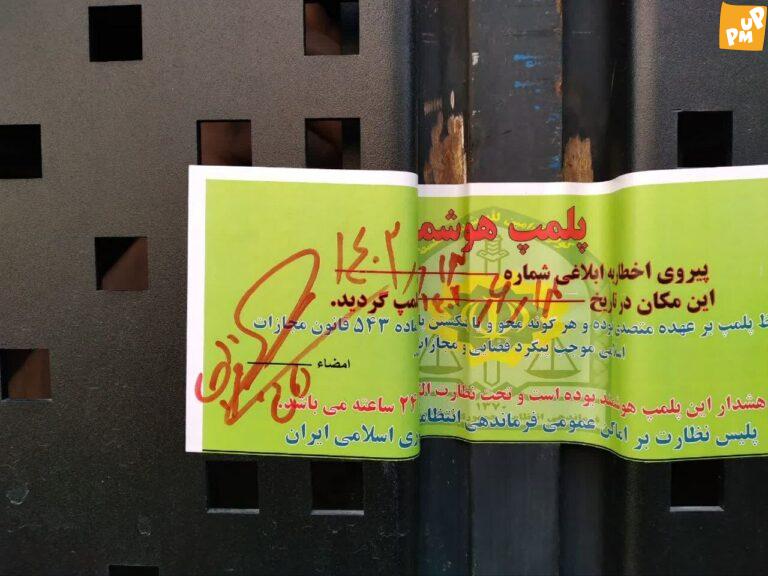 UP
PM
پلمپ هوشم
پیروی اخطاریه ابلاغی شماره
این مکان در تاریخ لمپ گردید.
ظ پلمپ بر عهده متصدی بوده و هر گونه محو و یا شکستن ماده ۵۴۳ قانون مجازات
اسلامی موجب پیگرد قضایی و مجازات
امضاء
هشدار این پلمپ هوشمند بوده است و تحت نظارت ۲۴ ساعته می باشد.
پلیس نظارت بر اماکن عمومی فرماندهی انتظامی ری اسلامی ایران